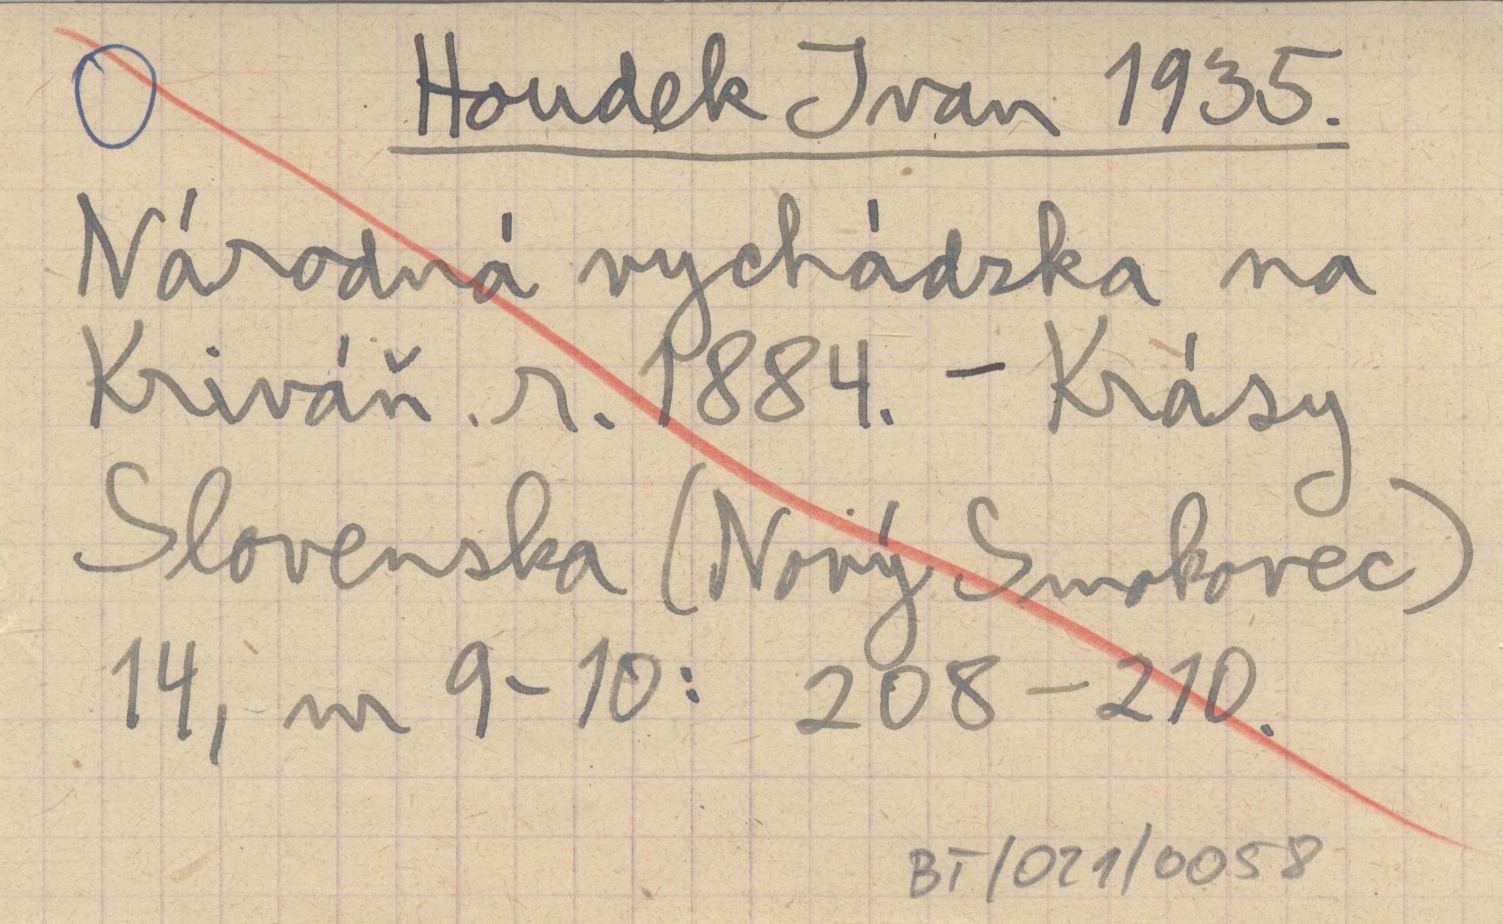 Houdek Ivan 1935.
Národná vychádzka na
Kriváň r. 1884. – Krásy
Slovenska (Nový Smokovec)
14, nr 9-10: 208-210.
BT/021/0058